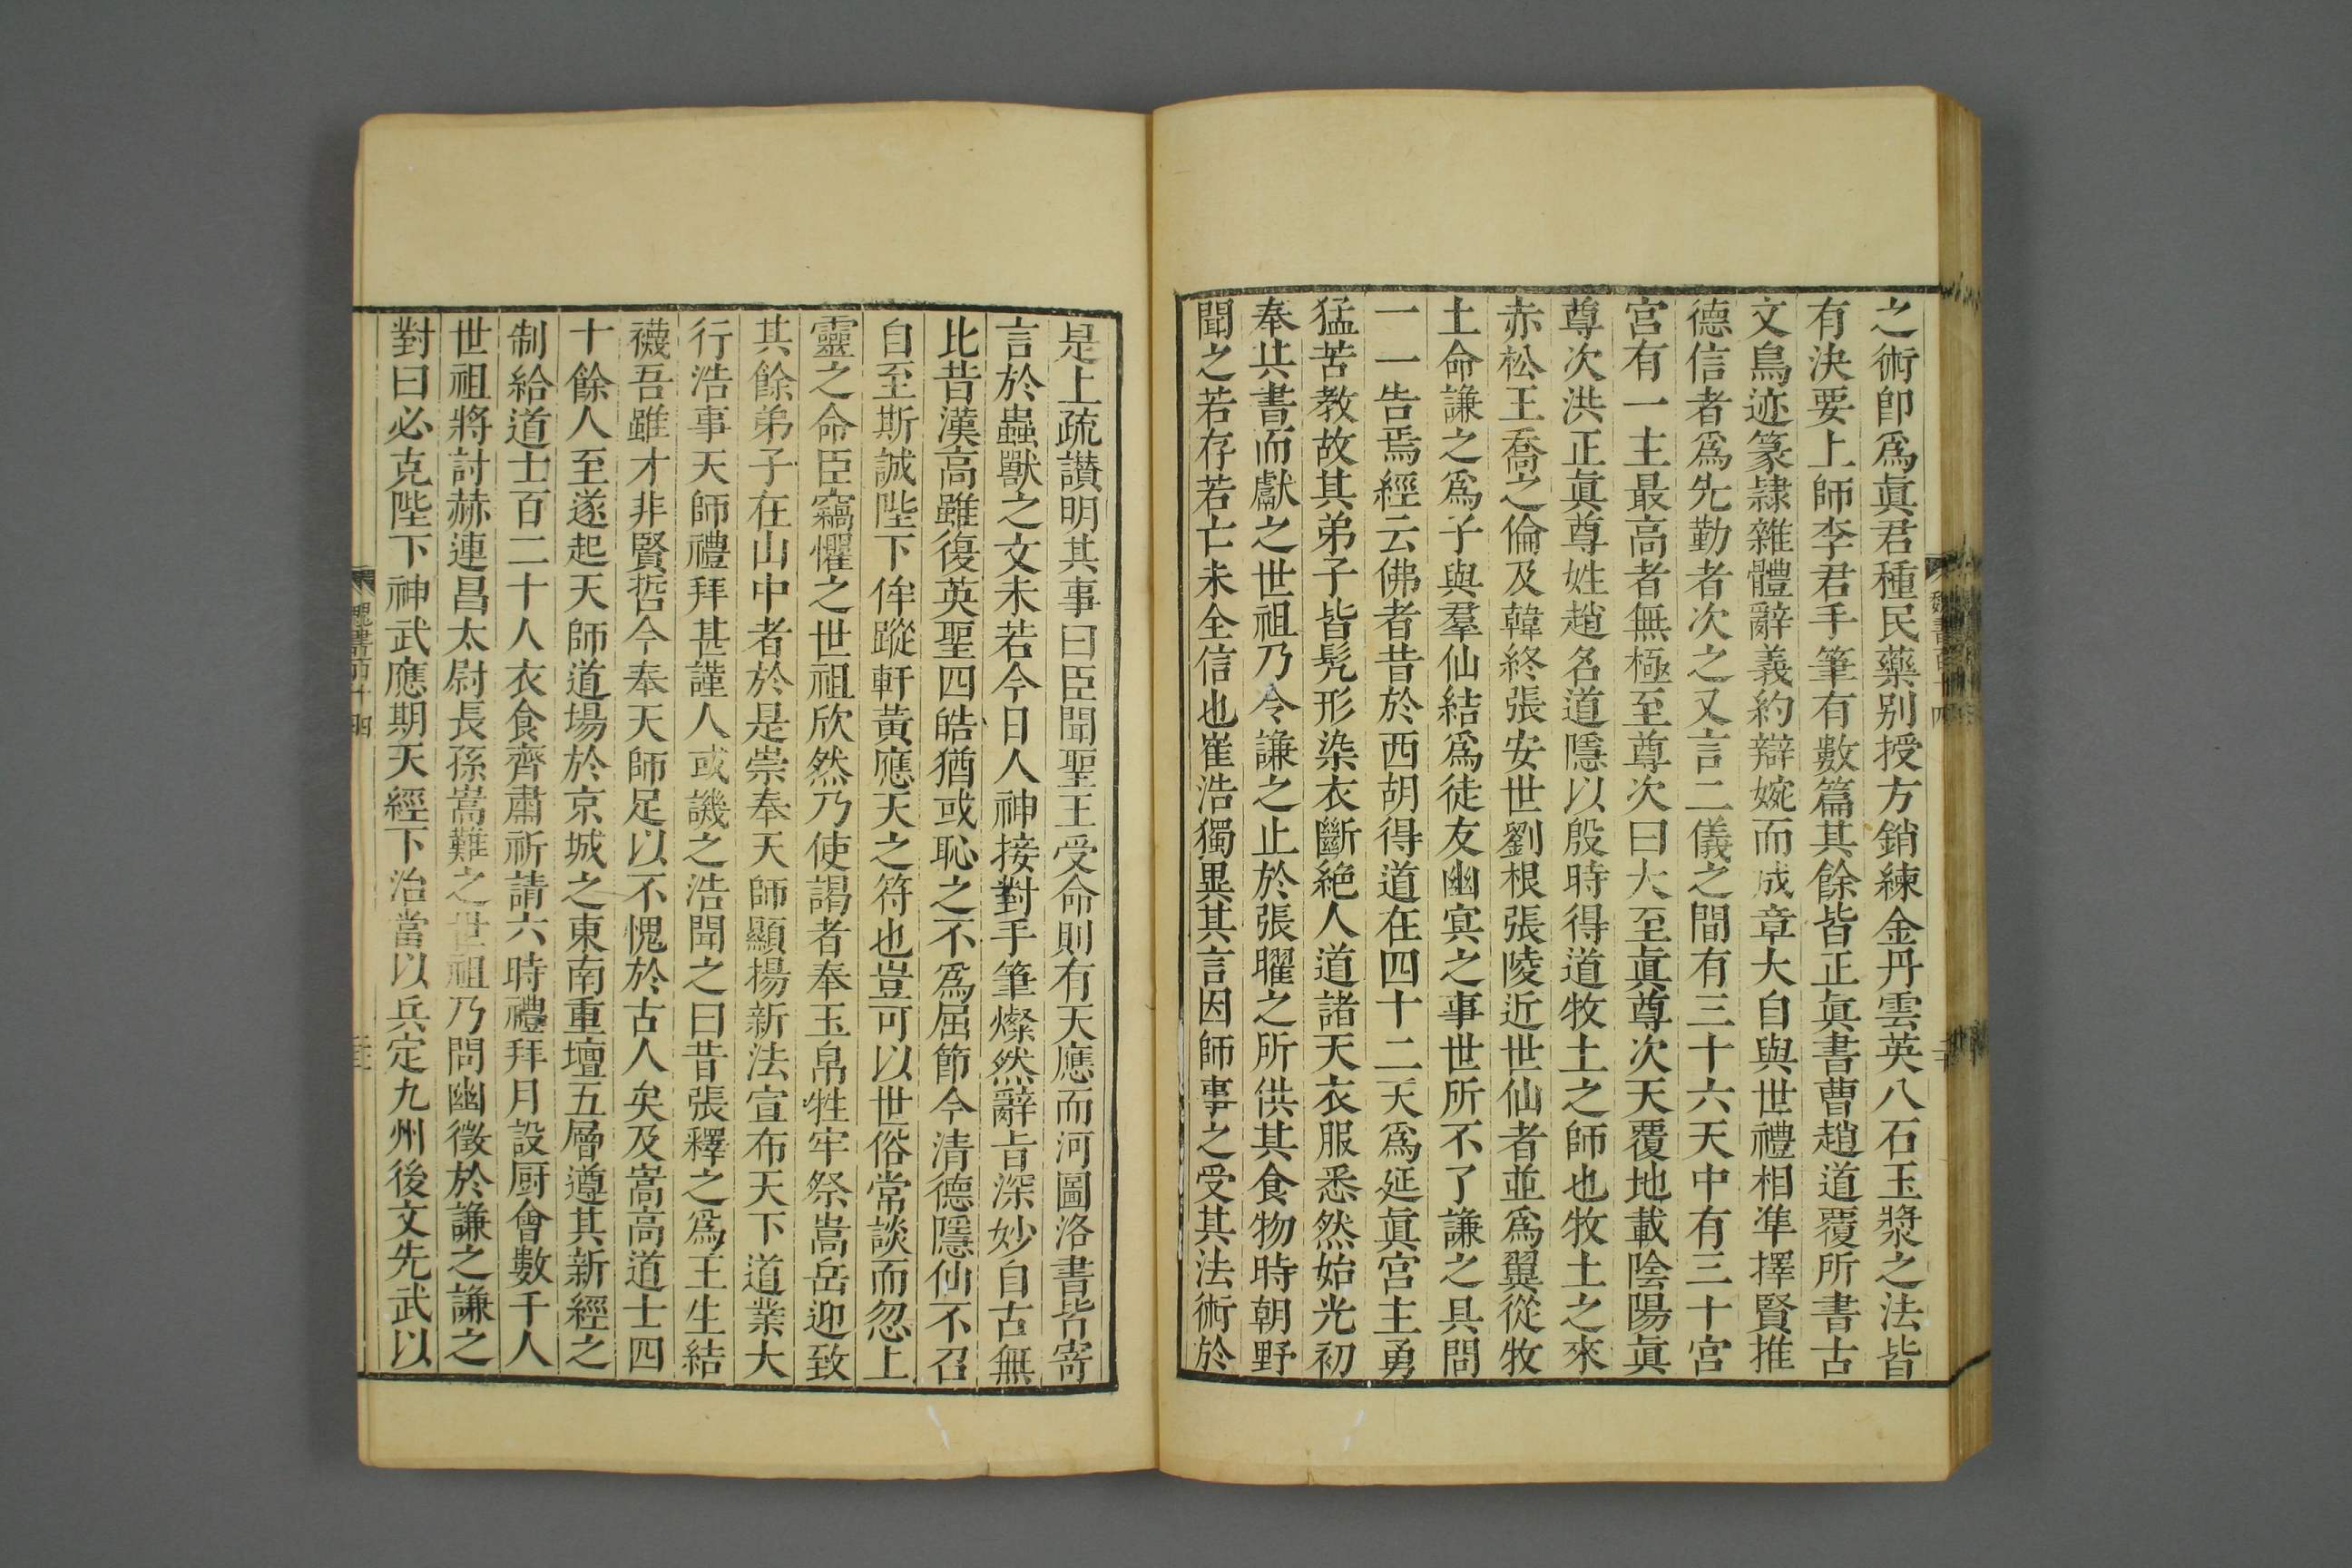 之術卽爲眞君種民藥別授方銷練金丹雲英八石玉漿之法皆
有決要上師李君手筆有數篇其餘皆正眞書曹趙道覆所書古
文鳥迹篆隷雜體辭義約辯婉而成章大自與世禮相準擇賢推
德信者爲先勤者次之又言二儀之間有三十六天中有三十宮
宮有一主最高者無極至尊次曰大至眞尊次天覆地載陰陽眞
尊次洪正眞尊姓趙名道隱以殷時得道牧土之師也牧土之來
赤松王喬之倫及韓終張安世劉根張陵近世仙者並爲翼從牧
土命謙之爲子與羣仙結爲徒友幽冥之事世所不了謙之具問
一一告焉經云佛者昔於西胡得道在四十二天爲延眞宮主勇
猛苦教故其弟子皆髠形染衣斷絶人道諸天衣服悉然始光初
奉其書而獻之世祖乃令謙之止於張曜之所供其食物時朝野
聞之若存若亡未全信也崔浩獨異其言因師事之受其法術於
魏書百十四
是上疏讃明其事曰臣聞聖王受命則有天應而河圖洛書皆寄
言於蟲獸之文未若今日人神接對手筆燦然辭旨深妙自古無
比昔漢高雖復英聖四皓猶或恥之不爲屈節今清德隱仙不召
自至斯誠陛下侔蹤軒黃應天之符也豈可以世俗常談而忽上
靈之命臣竊懼之世祖欣然乃使謁者奉玉帛牲牢祭嵩岳迎致
其餘弟子在山中者於是崇奉天師顯揚新法宣布天下道業大
行浩事天師禮拜甚謹人或譏之浩聞之曰昔張釋之爲王生結
襪吾雖才非賢哲今奉天師足以不愧於古人矣及嵩高道士四
十餘人至遂起天師道場於京城之東南重壇五層遵其新經之
制給道士百二十人衣食齊肅祈請六時禮拜月設厨會數千人
世祖將討赫連昌太尉長孫嵩難之世祖乃問幽徵於謙之謙之
對曰必克陛下神武應期天經下治當以兵定九州後文先武以
魏書百十四